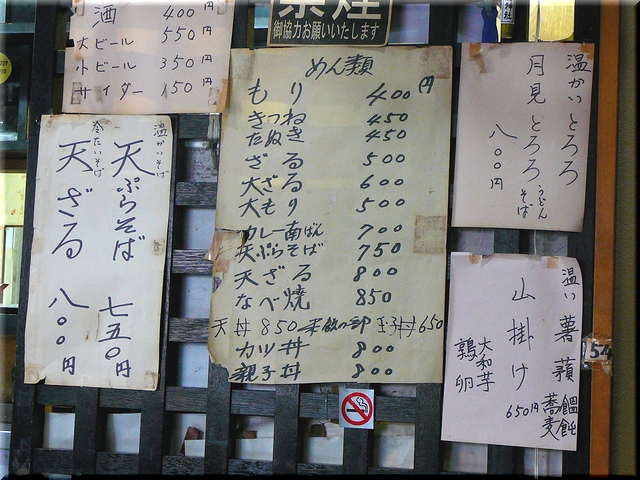 酒 400円
大ビール 550円
小ビール 350円
サイダー 150円
禁煙
御協力お願いいたします
めん類
もり 400円
きつね 450
たぬき 450
ざる 500
大ざる 600
大もり 500
カレー南ばん 700
天ぷらそば 750
天ざる 800
なべ焼 850
天丼 850 玉子丼 650
カツ丼 800
親子丼 800
温かいそば
天ぷらそば 七五〇円
冷たいそば
天ざる 八〇〇円
温かいとろろ
月見とろろ うどん そば
八〇〇円
温い 薯蕷 饂飩 蕎麦
山掛け 650円
大和芋
鶉卵
54